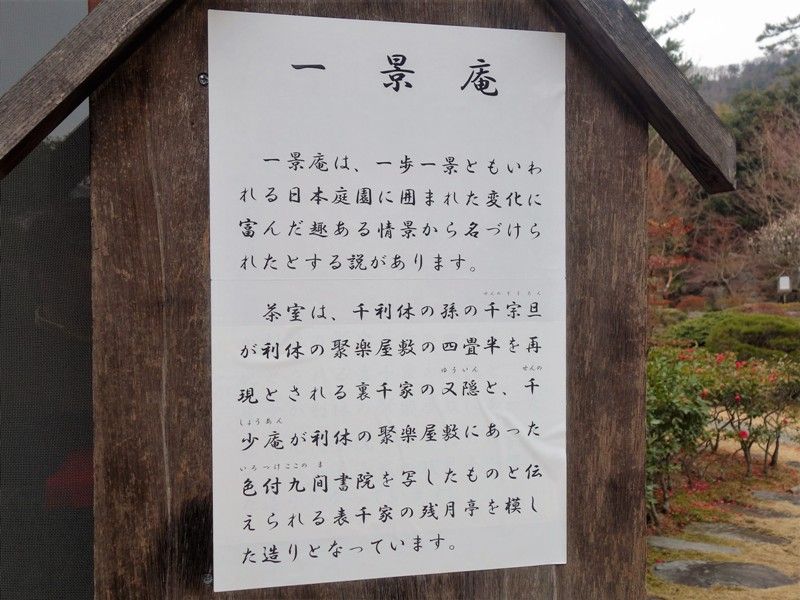 一景庵
一景庵は、一歩一景ともいわ
れる日本庭園に囲まれた変化に
富んだ趣ある情景から名づけら
れたとする説があります。
せんのそうたん
茶室は、千利休の孫の千宗旦
が利休の聚楽屋敷の四畳半を再
ゆういん せんの
現とされる裏千家の又隠と、千
しょうあん
少庵が利休の聚楽屋敷にあった
いろつけここのま
色付九間書院を写したものと伝
えられる表千家の残月亭を模し
た造りとなっています。